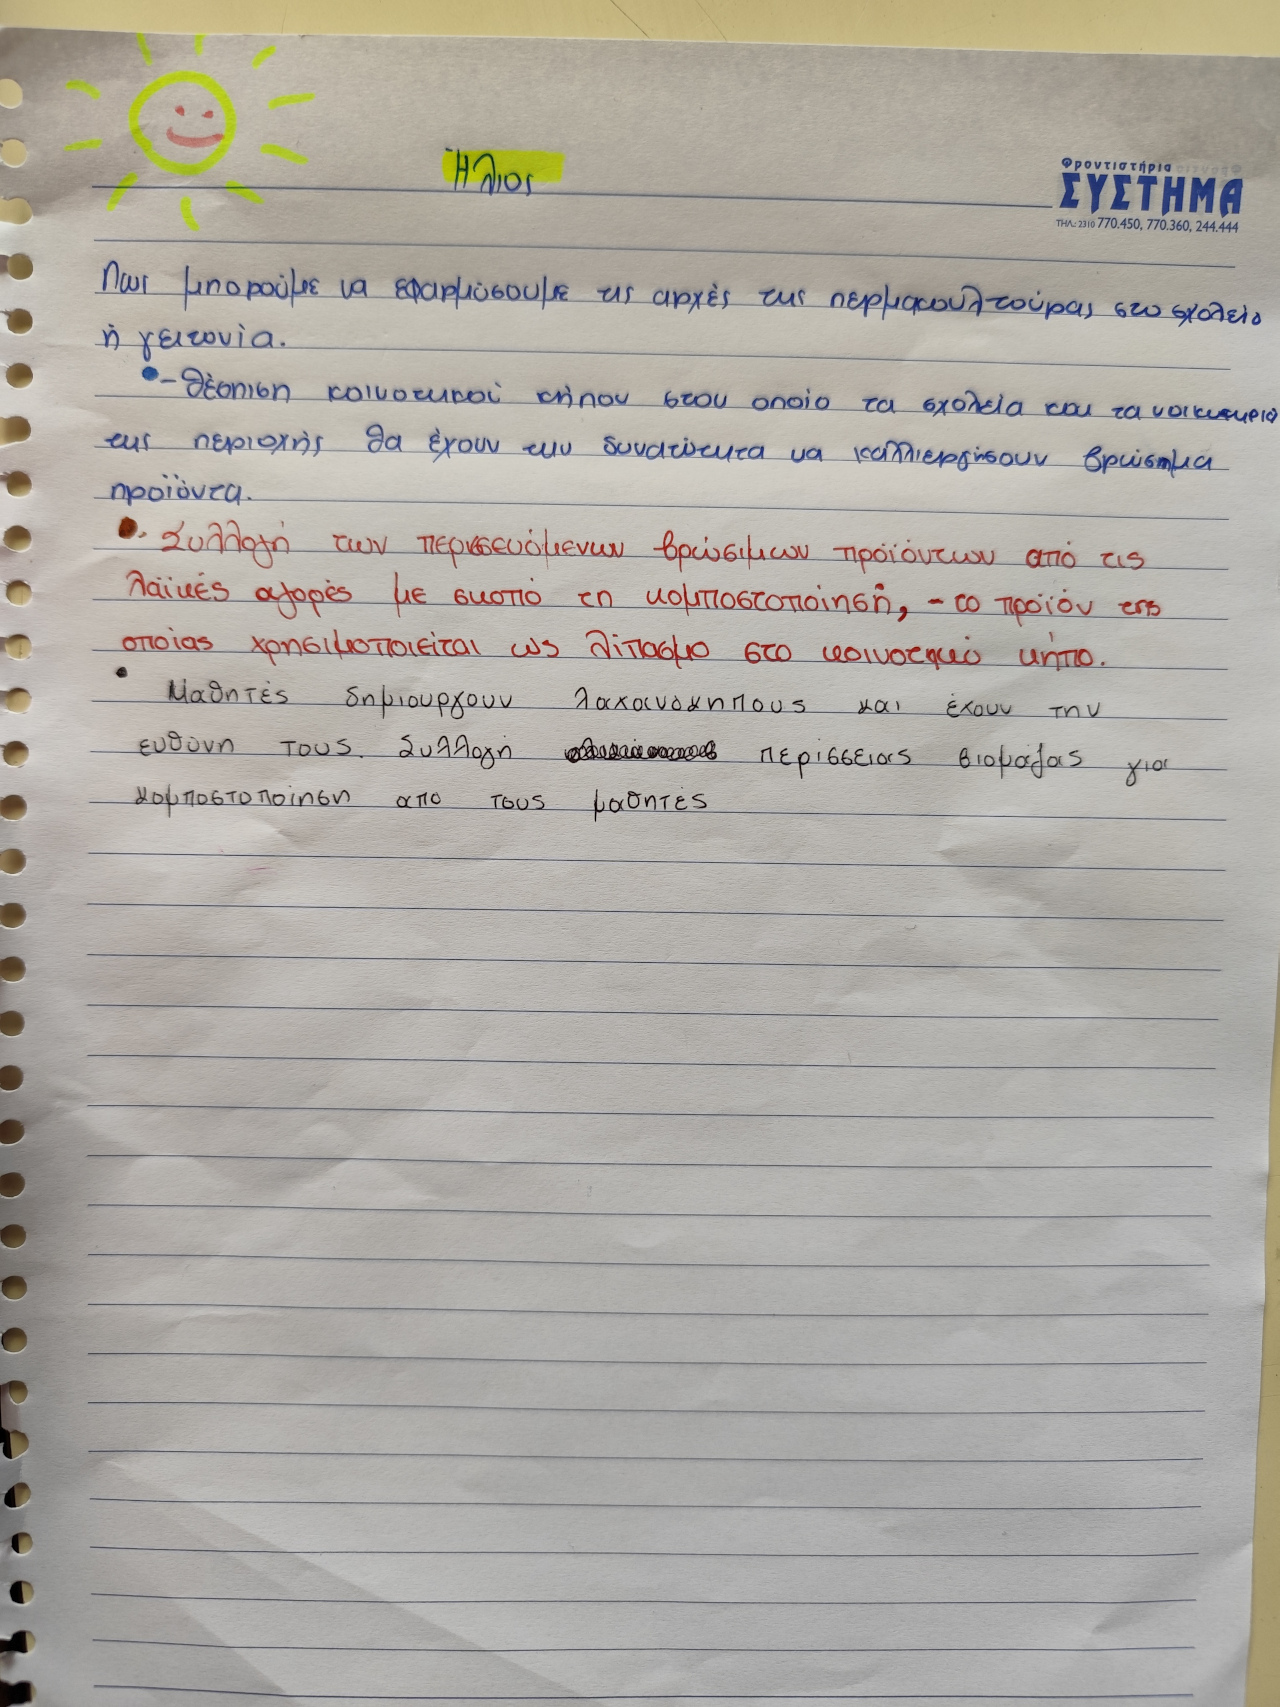 Ήλιος
Φροντιστήρια
ΣΥΣΤΗΜΑ
ΤΗΛ.: 2310 770.450, 770.360, 244.444
Πως μπορούμε να εφαρμόσουμε τις αρχές της περμακουλτούρας στο σχολείο
ή γειτονία.
•-Θέσπιση κοινοτικού κήπου στον οποίο τα σχολεία και τα νοικοκυριά
της περιοχής θα έχουν την δυνατότητα να καλλιεργήσουν βρώσιμα
προϊόντα.
•. Συλλογή των περισσευόμενων βρώσιμων προϊόντων από τις
λαϊκές αγορές με σκοπό τη κομποστοποίηση, - το προϊόν της
οποίας χρησιμοποιείται ως λίπασμα στο κοινοτικό κήπο.
• Μαθητές δημιουργουν λαχανόκηπους και έχουν την
ευθύνη τους. Συλλογή περίσσειας βιομάζας για
κομποστοποίηση απο τους μαθητές